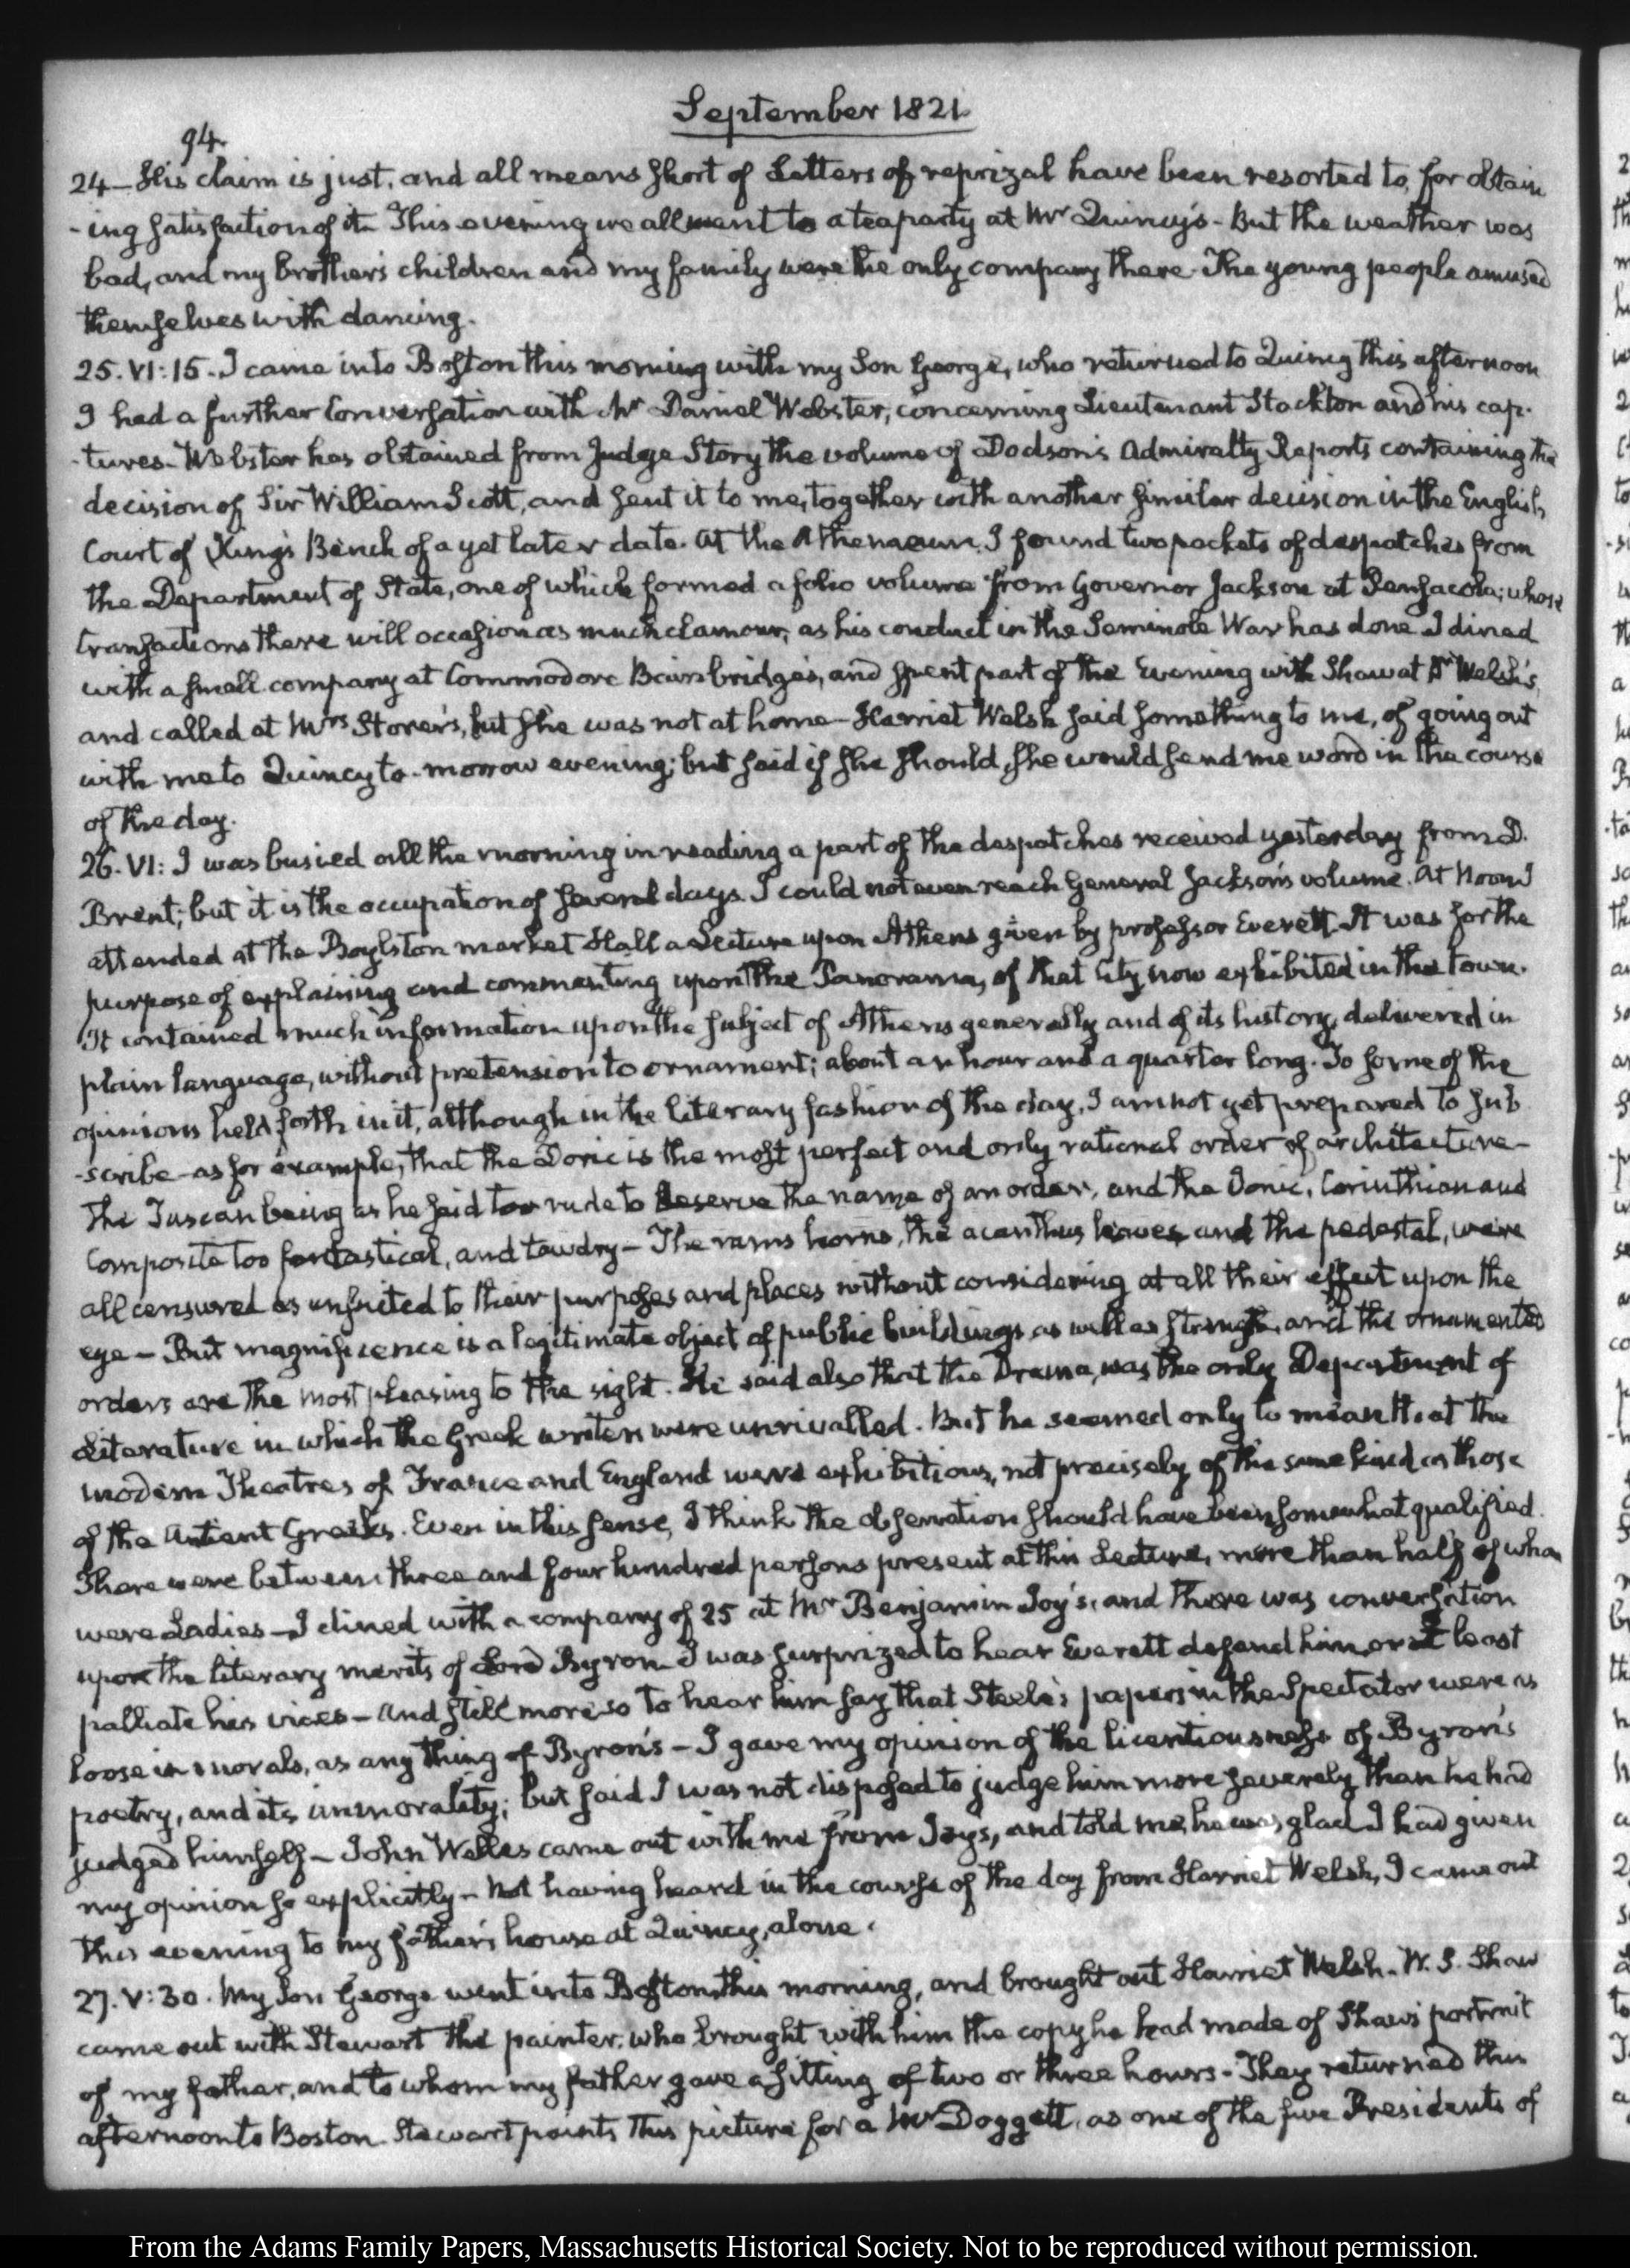 September 1821.
94.
24—His claim is just, and all means short of Letters of reprizal have been resorted to, for obtain
-ing satisfaction of it. This evening we all went to a tea party at Mr Quincy's - But the weather was
bad, and my brother's children and my family were the only company there. The young people amused
themselves with dancing.
25. VI:15. I came into Boston this morning with my Son George, who returned to Quincy this afternoon
I had a further Conversation with Mr Daniel Webster, concerning Lieutenant Stockton and his cap-
-tures. Webster has obtained from Judge Story the volume of Dodson's Admiralty Reports containing the
decision of Sir William Scott, and sent it to me, together with another similar decision in the English
Court of King's Bench of a yet later date. At the Athenaeum, I found two packets of despatches from
the Department of State, one of which formed a folio volume from Governor Jackson at Pensacola; whose
transactions there will occasion as much clamour, as his conduct in the Seminole War has done. I dined
with a small company at Commodore Bainbridge's, and spent part of the Evening with Shaw at Dr Welsh's,
and called at Mrs Storer's, but she was not at home - Harriet Welsh said something to me, of going out
with me to Quincy to-morrow evening; but said if she should, she would send me word in the course
of the day.
26. VI: I was busied all the morning in reading a part of the despatches received yesterday from D.
Brent; but it is the occupation of several days. I could not even reach General Jackson's volume. At Noon I
attended at the Boylston market Hall a Lecture upon Athens given by professor Everett. It was for the
purpose of explaining and commenting upon the Panorama, of that City now exhibited in the town.
It contained much information upon the subject of Athens generally and of its history, delivered in
plain language, without pretension to ornament; about an hour and a quarter long. To some of the
opinions held forth in it, although in the literary fashion of the day, I am not yet prepared to sub
-scribe - as for example, that the Doric is the most perfect and only rational order of architecture -
The Tuscan being as he said too rude to deserve the name of an order, and the Ionic, Corinthian and
Composite too fantastical, and tawdry - The rams horns, the acanthus leaves and the pedestal, were
all censured as unsuited to their purposes and places without considering at all their effect upon the
eye - But magnificence is a legitimate object of public buildings as well as strength, and the ornamented
orders are the most pleasing to the sight. He said also that the Drama, was the only Department of
Literature in which the Greek writers were unrivalled. But he seemed only to mean that the
modern Theatres of France and England were exhibitions, not precisely of the same kind as those
of the Antient Greeks. Even in this sense, I think the observation should have been somewhat qualified.
There were between three and four hundred persons present at this Lecture, more than half of whom
were Ladies - I dined with a company of 25 at Mr Benjamin Joy's, and there was conversation
upon the literary merits of Lord Byron. I was surprized to hear Everett defend him, or at least
palliate his vices - And still more so to hear him say that Steele's papers in the Spectator were as
loose in morals, as any thing of Byron's - I gave my opinion of the licentiousness of Byron's
poetry, and its immorality; but said I was not disposed to judge him more severely than he had
judged himself - John Welles came out with me from Joys, and told me, he was glad I had given
my opinion so explicitly - Not having heard in the course of the day from Harriet Welsh, I came out
this evening to my father's house at Quincy, alone.
27. V:30. My Son George went into Boston this morning, and brought out Harriet Welsh. W. S. Shaw
came out with Stewart the painter, who brought with him the copy he had made of Shaw's portrait
of my father, and to whom my father gave a sitting of two or three hours - They returned this
afternoon to Boston. Stewart paints this picture for a Mr Doggett, as one of the five Presidents of
From the Adams Family Papers, Massachusetts Historical Society. Not to be reproduced without permission.